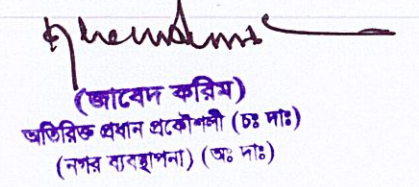 (জাবেদ করিম)
অতিরিক্ত প্রধান প্রকৌশলী (চঃ দাঃ)
(নগর ব্যবস্থাপনা) (অঃ দাঃ)